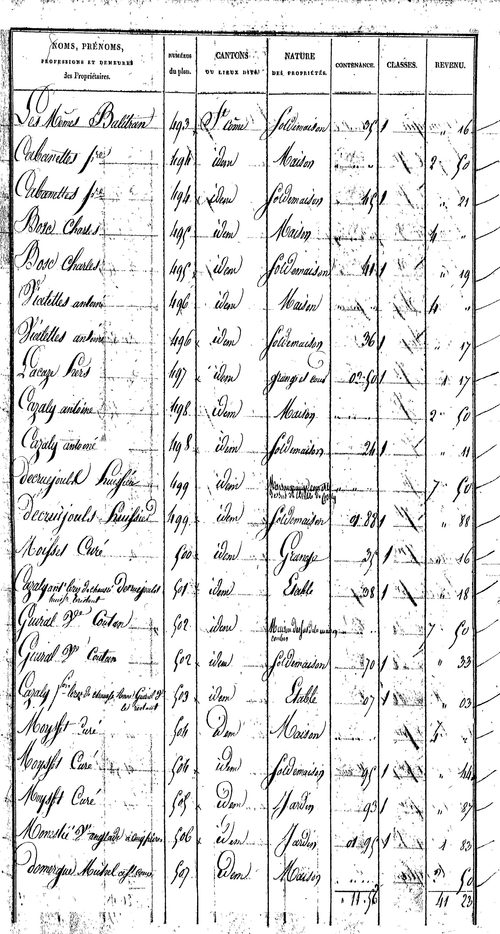 NOMS, PRÉNOMS, PROFESSIONS ET DEMEURES des Propriétaires. NUMÉROS du plan. CANTONS OU LIEUX DITS. NATURE DES PROPRIÉTÉS. CONTENANCE. CLASSES. REVENU.
Les Mêmes Baldran 493 Ste Côme Soldemaison 35 1 " 16
Cabanettes 494 idem Maison 2 50
Cabanettes 494 idem Soldemaison 45 1 " 21
Bosc Charles 495 idem Maison 4 "
Bosc Charles 495 idem Soldemaison 41 1 " 19
Vieillettes antoine 496 idem Maison 4 "
Vieillettes antoine 496 idem Soldemaison 36 1 " 17
Lacaze 497 idem grange et cour 02 50 1 17
Cazaly antoine 498 idem Maison 2 50
Cazaly antoine 498 idem Soldemaison 24 1 " 11
decrucjouls huissier 499 idem 7 50
decrucjouls huissier 499 idem Soldemaison 01 88 1 " 88
Moysset Curé 500 idem Grange 35 1 " 16
Cazaly 501 idem Etable 38 1 " 18
Guiral Ve Couton 502 idem 7 50
Guiral Ve Couton 502 idem Soldemaison 70 1 " 33
Cazaly 503 idem Etable 07 1 " 03
Moysset Curé 504 idem Maison
Moysset Curé 504 idem Soldemaison 95 1 " 44
Moysset Curé 505 idem Jardin 93 1 " 87
506 idem Jardin 01 95 1 1 83
domergue Michel 507 idem Maison 50
" 11 56 41 23